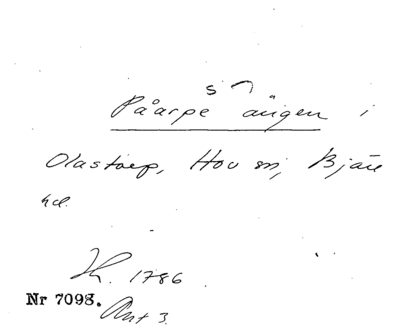 s
Påarpe ängen i
Olastorp, Hov sn, Bjäre
hd.
1786
Nr 7098.
Akt 3.